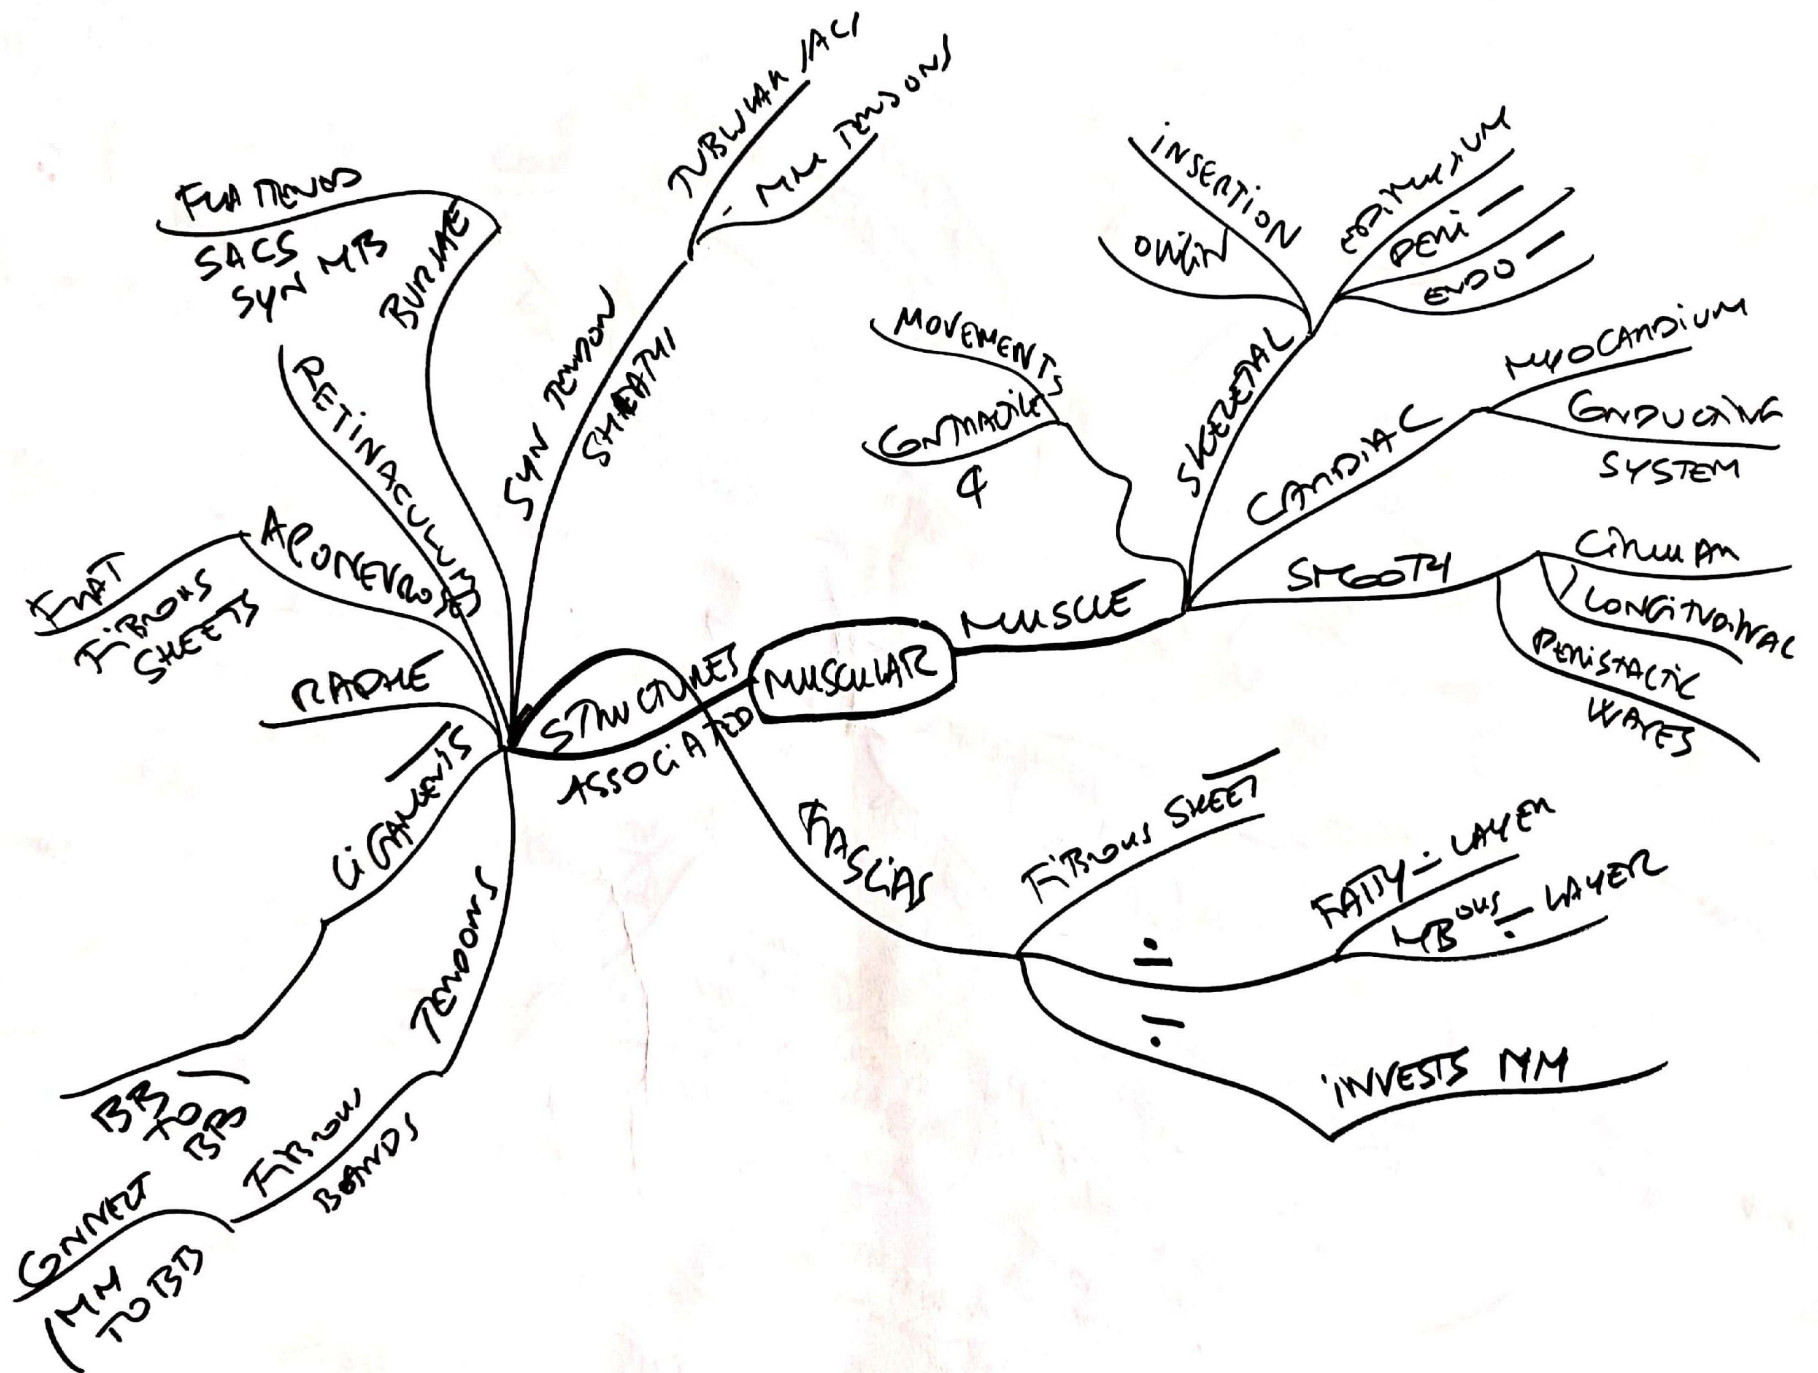 MUSCULAR
MUSCLE
MOVEMENTS
CONTRACTILE
¢
SKELETAL
ORIGIN
INSERTION
EPIMYSIUM
PERI —
ENDO —
CARDIAC
MYOCARDIUM
CONDUCTING
SYSTEM
SMOOTH
CIRCULAR
LONGITUDINAL
PERISTALTIC
WAVES
STRUCTURES
ASSOCIATED
FASCIAS
FIBROUS SHEET
FATTY ∸ LAYER
MBOUS LAYER
INVESTS MM
SYN TENDON
SHEATH
TUBULAR SACS
- MM TENDONS
BURSAE
FLATTENED
SACS
SYN MB
RETINACULUMS
APONEUROSES
FLAT
FIBROUS
SHEETS
RAPHE
LIGAMENTS
BB
TO
BB
TENDONS
FIBROUS
BANDS
CONNECT
MM
TO BB